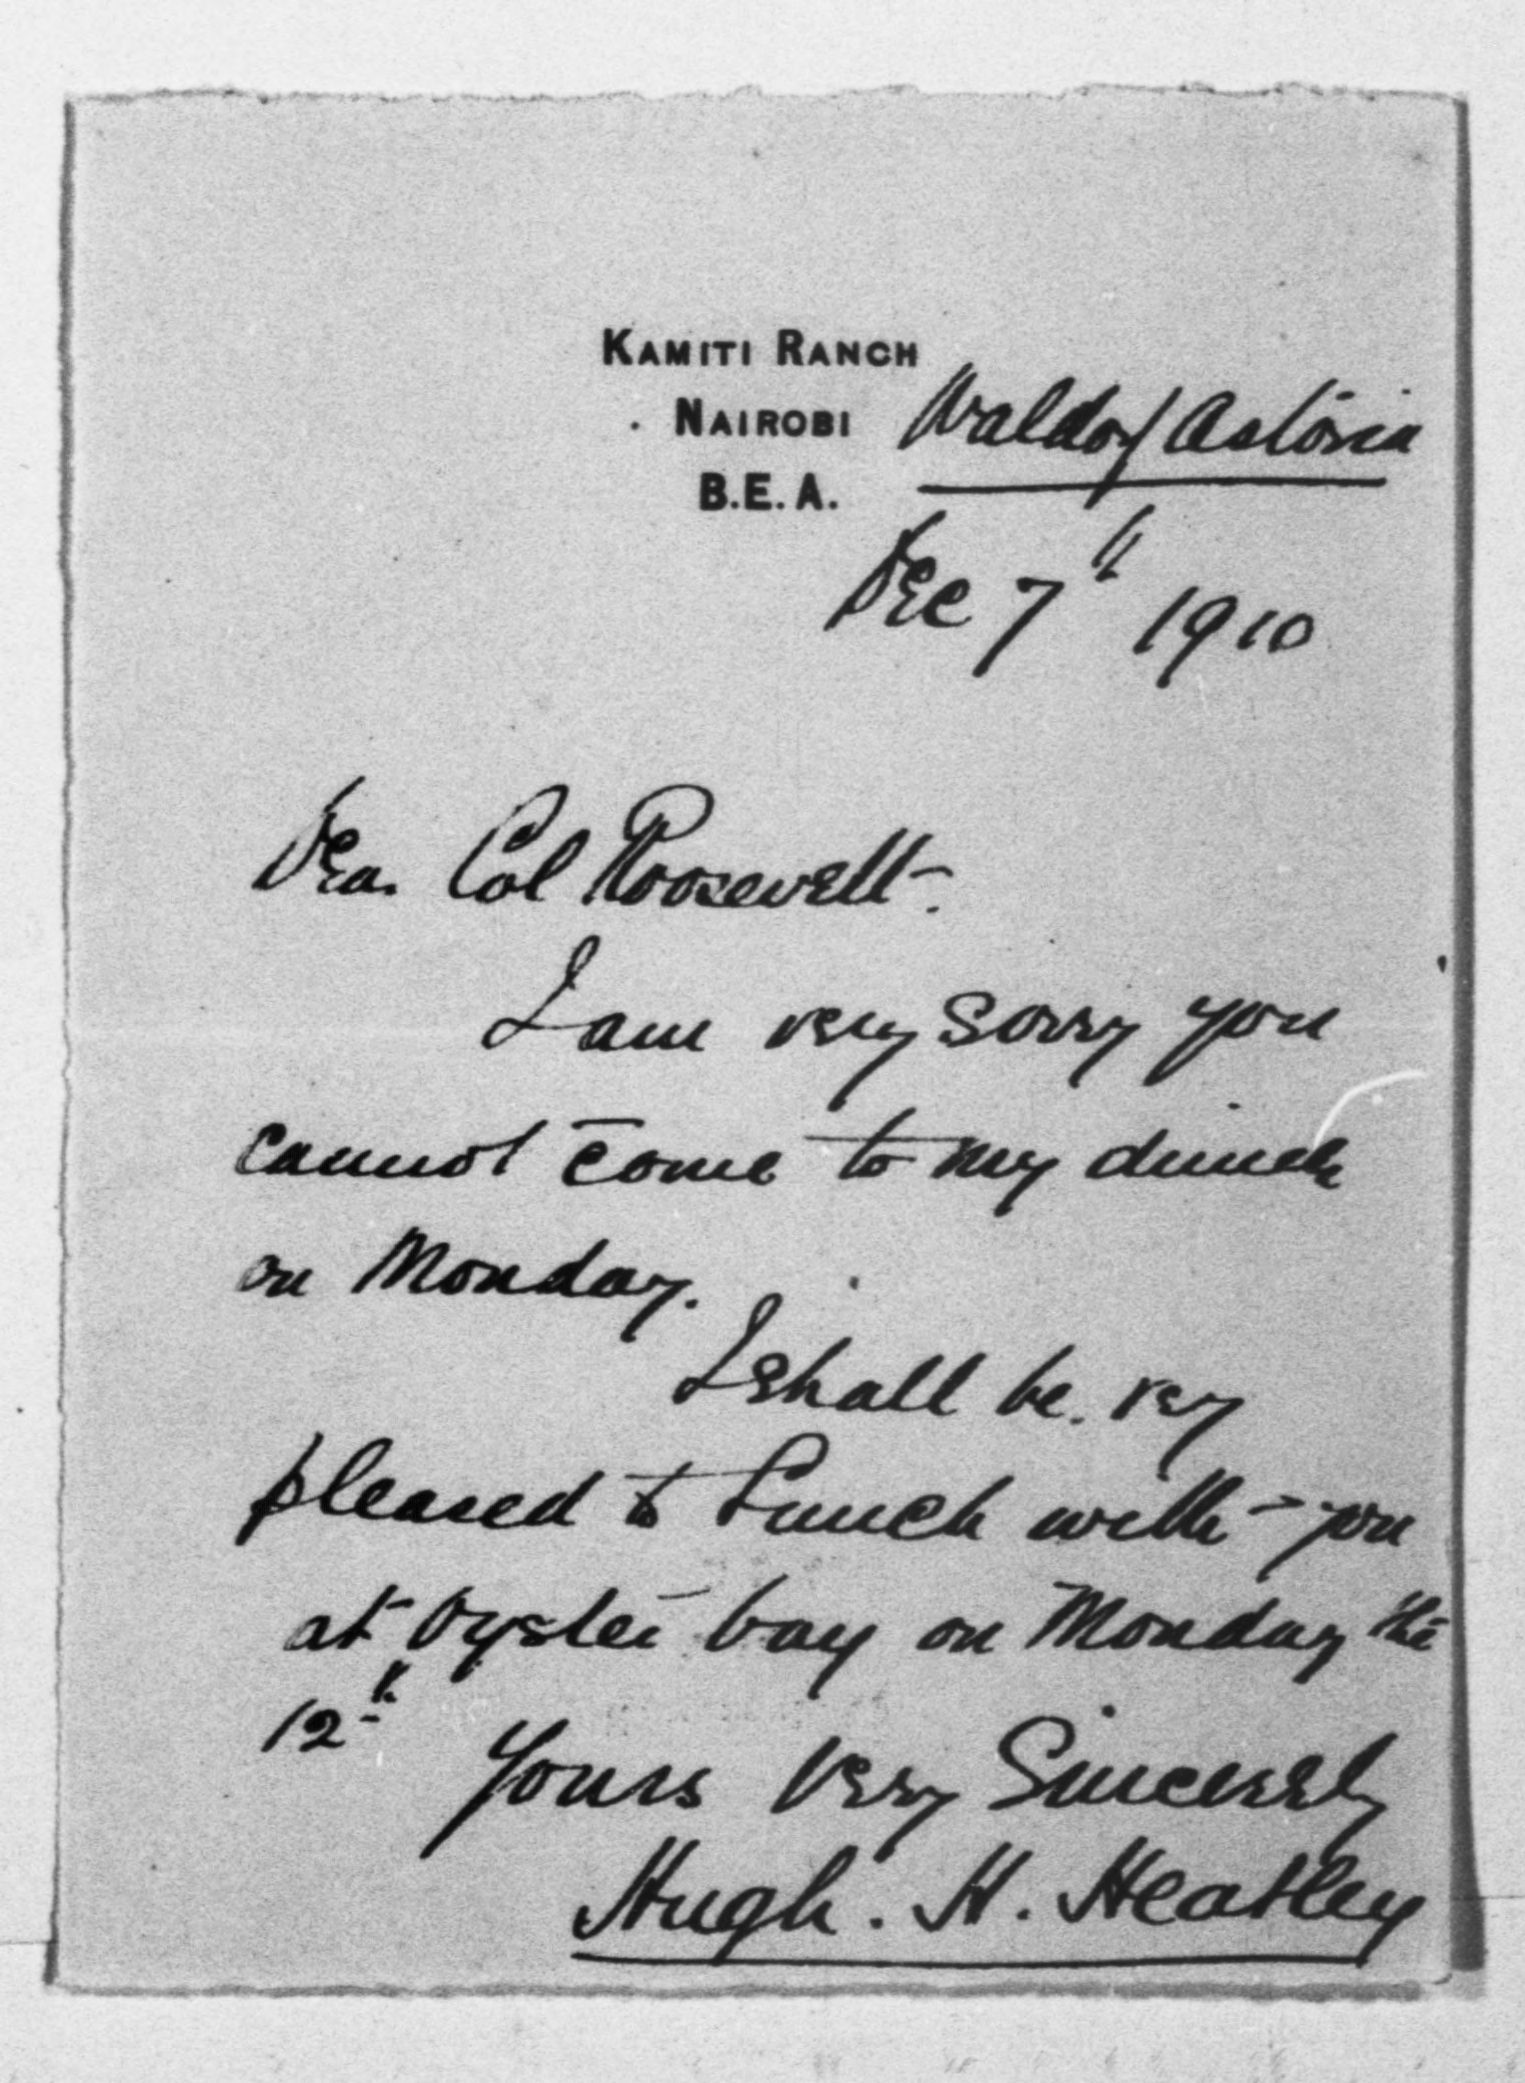 KAMITI RANCH
NAIROBI
B.E.A.
Waldorf Astoria
Dec 7th 1910
Dear Col Roosevelt.
I am very sorry you
cannot come to my dinner
on Monday.
I shall be very
pleased to Lunch with you
at Oyster bay on Monday the
12th
Yours Very Sincerely
Hugh. H. Heatley